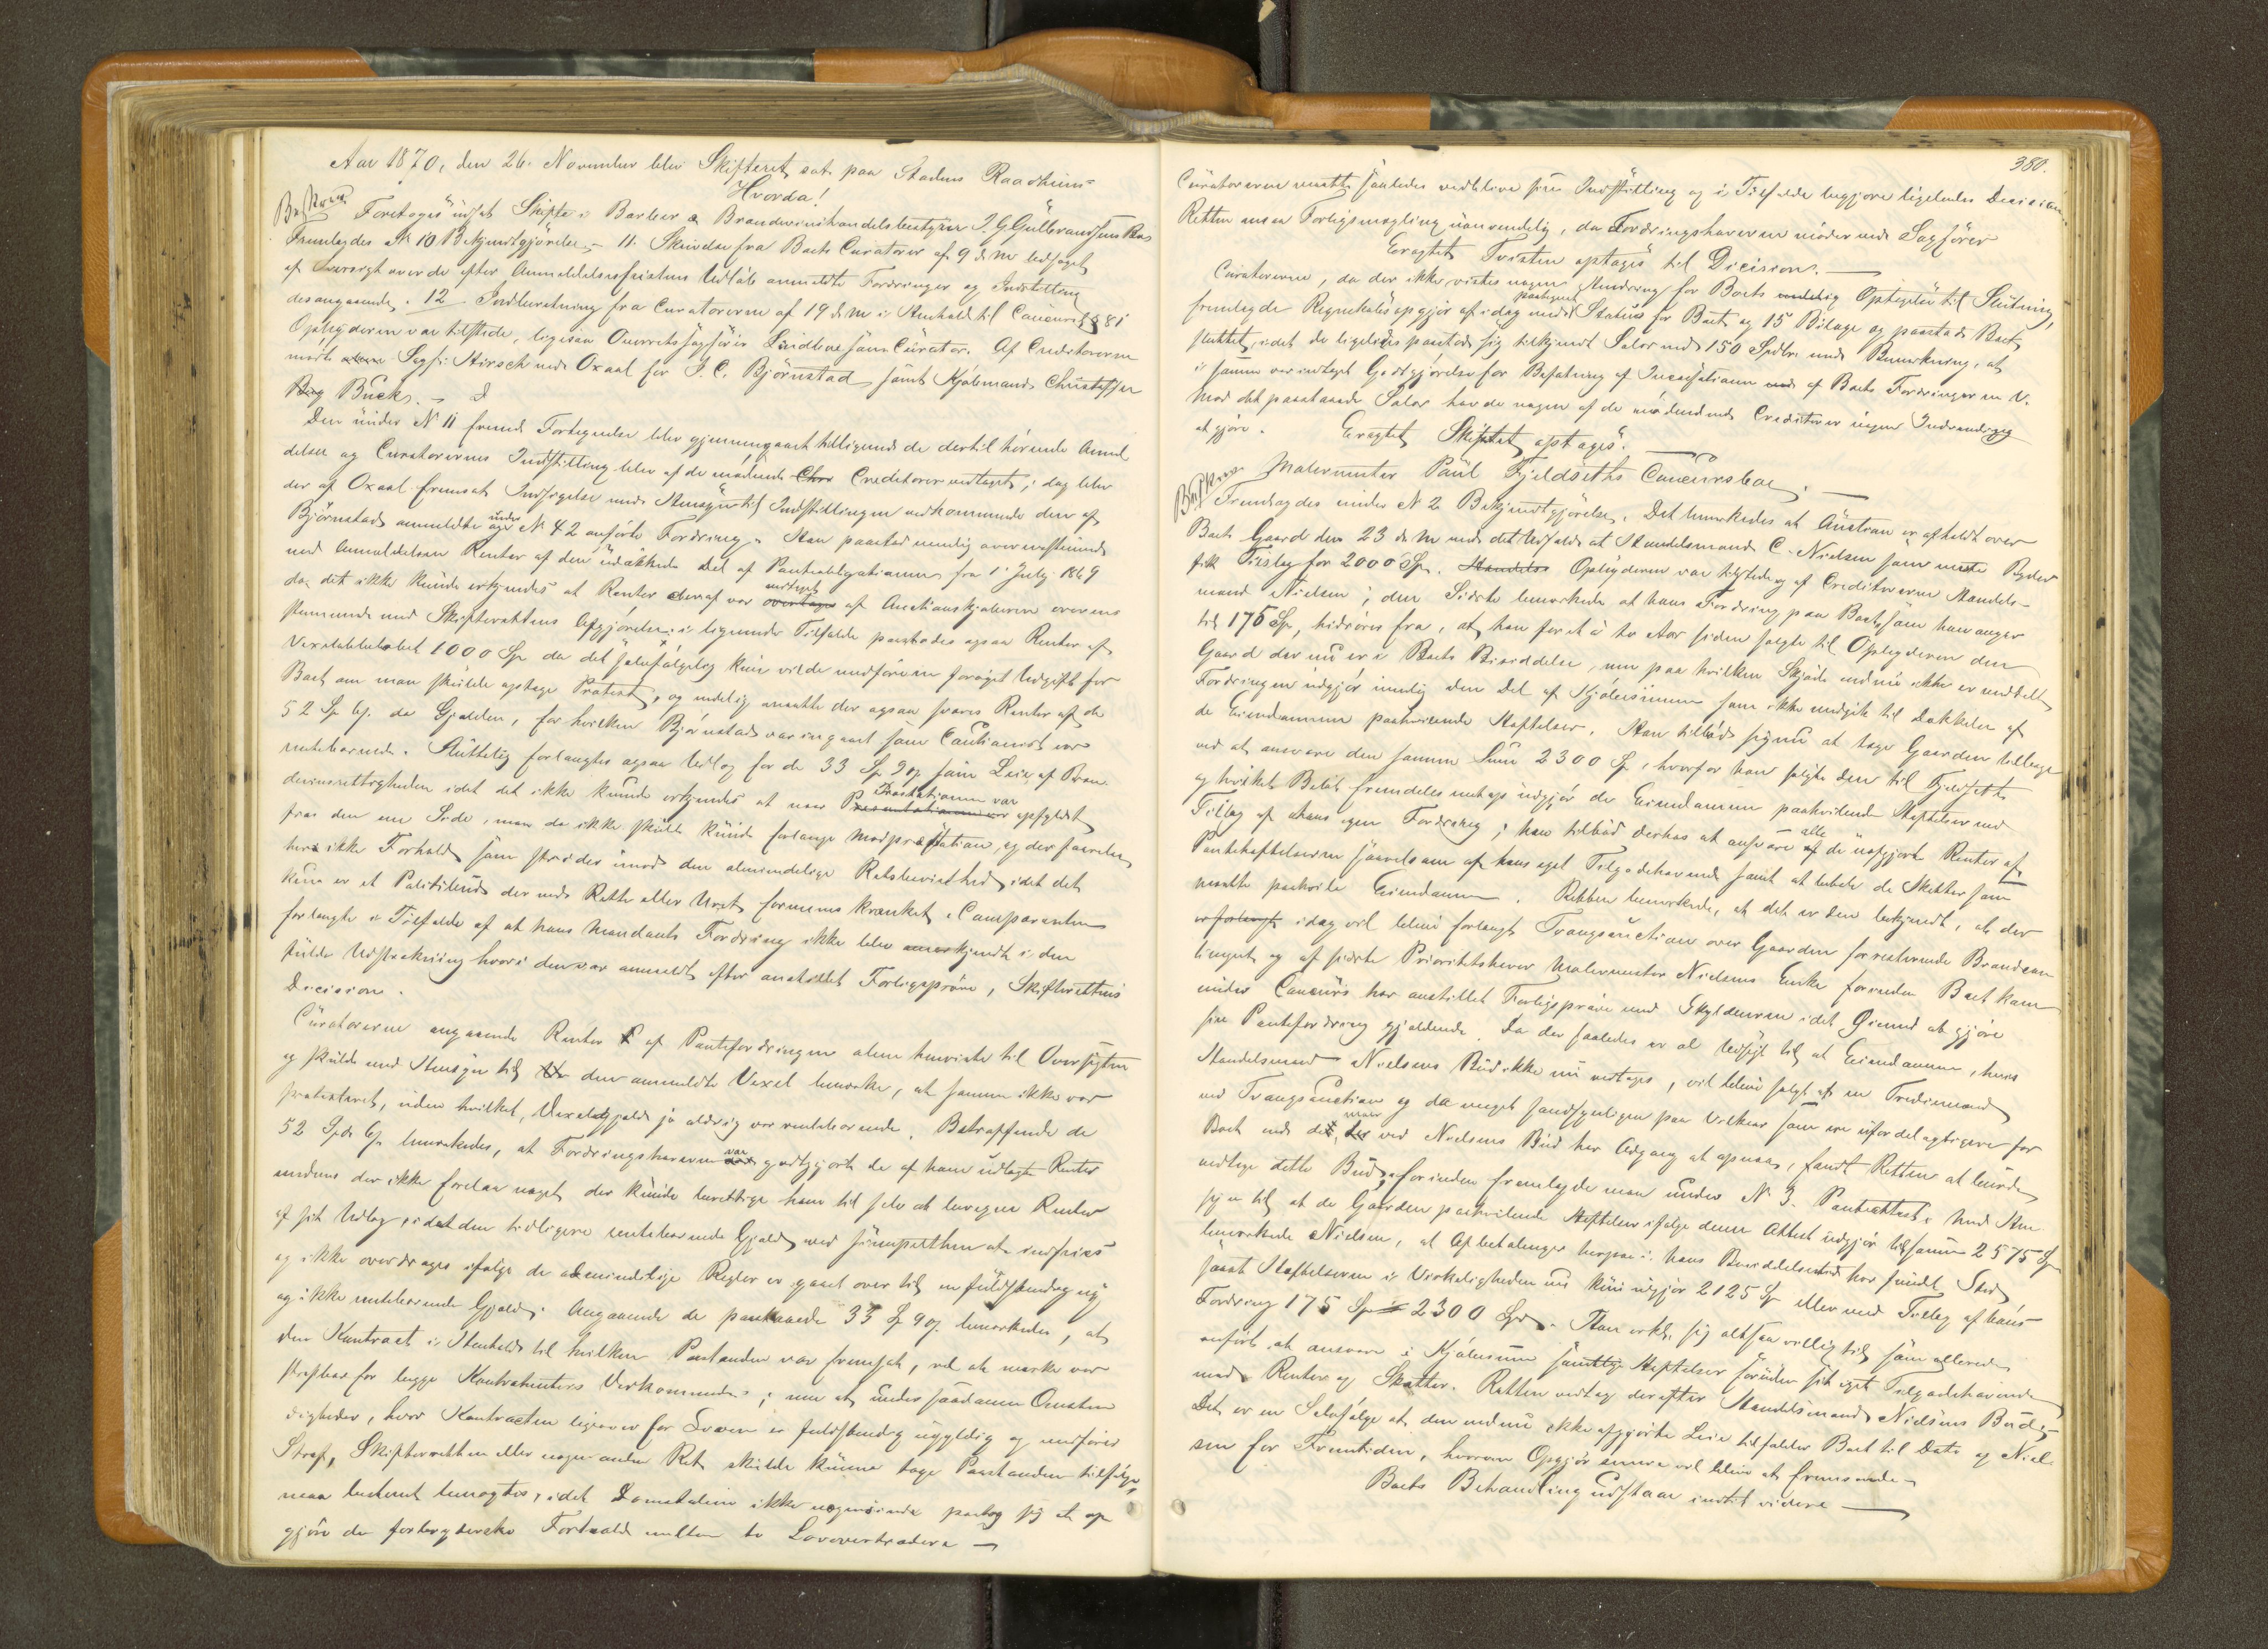 Aar 1870, den 26. November blev Skifteret sat paa Stadens Raadhuus
Hvorda!
Beskrevet
Foretoges indsat Skifte i Barbeer & Brændeviinshandelsbestyrer J. G. Gulbrandsens Boe
Fremlagdes No 10 Bekjendtgjørelse, 11. Skrivelse fra Boets Curatorer af 9 ds M ledsaget
af Oversigt over de efter Anmeldelsesfristens Udløb anmeldte Fordringer og Indstilling
desangaaende. 12 Indberetning fra Curatorerne af 19 ds M i Henhold til Concursl § 81
Opbyderen var tilstede, ligesaa Overretssagfører Lindboe som Curator. Af Creditorerne
mødte Sagf: Hirsch med Oxaal for J. C. Bjørnstad samt Kjøbmand Christoffer
Buck.
Den under No 11 freml. Fortegnelse blev gjennemgaaet tilligemed de dertil hørende Anmel
delser og Curatorernes Indstilling blev af de mødende Creditorer vedtaget; dog blev
der af Oxaal fremsat Indsigelse med Hensyn til Indstillingen vedkommende den af
Bjørnstad anmeldte under No 42 anførte Fordring. Han paastod nemlig overensstemmende
med Anmeldelsen Renter af den udækkede Del af Panteobligationen fra 1 July 1869
da det ikke kunde erkjendes at Renter deraf var vedtaget af Auctionskjøberen overens
stemmende med Skifterettens Afgjørelse i lignende Tilfælde paastodes ogsaa Renter af
Vexelobeløbet 1000 Sp da det selvfølgelig kun vilde medføre en forøget Udgift for
Boet om man skulde optage Protest, og endelig maatte der ogsaa svares Renter af de
52 Sp 6 da Gjælden, for hvilken Bjørnstad var ingaaet som Cautionist var
rentebærende. Sluttelig forlangtes ogsaa Udlæg for de 33 Sp 9 som Leie af Bræn
deviinsrettigheden idet det ikke kunde erkjendes at naar Præstationen var opfyldt
fra den ene Side, man da ikke skulde kunde forlange Modpræstation, og der foreligger
her ikke Forhold som strider imod den almindelige Retsbevisthed, idet det
kun er et Politibud der med Rette eller Uret formenes krænket. Comparenten
forlangte i Tilfælde af at hans Mandants Fordring ikke blev anerkjendt i den
fulde Udstrækning hvori den var anmeldt efter anstillet Forligsprøve, Skifterettens
Decision.
Curatorerne angaaende Renter af Pantefordringen alene henviste til Oversigten
og skulde med Hensyn til den anmeldte Vexel bemærke, at samme ikke var
protesteret, uden hvilket, Vexelgjæld jo aldrig var rentebærende. Betræffende de
52 Spd 6 bemærkedes, at Fordringshaveren var godtgjort de af ham udlagte Renter
medens der ikke forelaa noget der kunde berettige ham til selv at beregne Renter
af sit Udlæg, idet den tidligere rentebærende Gjæld ved simpelthen at indfries
og ikke overdrages ifølge de almindelige Regler er gaaet over til en fuldstændig ny
og ikke rentebærende Gjæld. Angaaende de paastaaede 33 Sp 9 bemærkedes, at
den Kontract i Henhold til hvilken Paastanden var fremsat, vel at mærke var
strafbar for begge Kontrahenters Vedkommende; men at under saadanne Omstæn
digheder, hvor Kontracten ligeover for Loven er fuldstændig ugyldig og medfører
Straf, Skifteretten eller nogen anden Ret skulde kunne tage Paastanden tilfølge,
maa bestemt benægtes, idet Domstolene ikke nogensinde paatog sig at op
gjøre de forbryderske Forhold mellem to Lovovertrædere —
380.
Curatorerne maatte saaledes vedblive sin Indstilling og i Tilfælde begjære ligeledes Decision.
Retten ansaa Forligsmægling uanvendelig, da Fordringshaveren møder ved Sagfører
Eragtet Tvisten optages til Decision. —
Curatorerne, da der ikke vistes nogen Hindring for Boets Optagelse til Slutning,
fremlagde Regnskabsopgjør af idag med paategnet Status for Boet og 15 Bilage og paastod Boet
sluttet, idet de ligeledes paastod sig tilkjendt Salær med 150 Spdlr. med Bemærkning, at
i samme var indtaget Godtgjørelse for Befatning af Incassationen af Boets Fordringer m. V.
Mod det paastaaede Salær havde nogen af de mødende Creditorer ingen Indvending
at gjøre. Eragtet Skiftet optages.
Beskrevet
Malermester Paul Fjeldseths Concursboe. —
Fremlagdes under No 2 Bekjendtgjørelse. Det bemærkedes at Auction er afholdt over
Boets Gaard den 23 ds M med det Udfald at Handelsmand C. Nielsen som meste Byder
fik Tilslag for 2000 Sp. Opbyderen var tilstede og af Creditorerne Handels-
mand Nielsen; den Sidste bemærkede at hans Fordring paa Boet, som han angav
til 175 Sp, hidrører fra, at han for et à to Aar siden solgte til Opbyderen den
Gaard der nu er i Boets Besiddelse, men paa hvilken Skjøde endnu ikke er meddelt
Fordringen udgjør nemlig den Del af Kjøbesummen som ikke medgik til Dækkelse af
de Eiendommen paahvilende Heftelser. Han tilbød sig nu at tage Gaarden tilbage
ved at ansvare den samme Sum 2300 Sp, hvorfor han solgte den til Fjeldseth
og hvilket Beløb fremdeles netop udgjør de Eiendommen paahvilende Heftelser med
Tillæg af hans egen Fordring; han tilbød derhos at ansvare alle de uopgjorte Renter af
Panteheftelserne saavelsom af hans eget Tilgodehavende samt at betale de Skatter som
maatte paahvile Eiendommen. Retten bemærkede, at det er den bekjendt, at der
idag vil blive forlangt Tvangsauction over Gaarden for resterende Brandcon
tingent og at sidste Prioritetshaver Malermester Nielsens Enke forinden Boet kom
under Concurs har anstillet Forligsprøve med Skyldneren idet Øiemed at gjøre
sin Pantefordring gjældende. Da der saaledes er al Udsigt til at Eiendommen, hvis
Handelsmand Nielsens Bud ikke nu vedtages, vil blive solgt af en Trediemand
ved Tvangsauction og da meget sandsynligen paa Vilkaar som ere ufordelagtigere for
Boet end det, man ved Nielsens Bud har Adgang at opnaa, fandt Retten at burde
vedtage dette Bud, forinden fremlagde man under No 3. Panteattest. Med Hen
syn til at de Gaarden paahvilende Heftelser ifølge denne Attest udgjør tilsammen 2575 Sp
bemærkede Nielsen, at Afbetalinger herpaa i hans Besiddelsestid har fundet Sted
saaat Heftelserne i Virkeligheden nu kun udgjør 2125 Sp eller med Tillæg af hans
Fordring 175 Sp = 2300 Spd. Han erkl. sig altsaa villig til som allerede
anført at ansvare i Kjøbesum samtlige Heftelser foruden sit eget Tilgodehavende
med Renter og Skatter. Retten vedtog derefter Handelsmand Nielsens Bud,
Det er en Selvfølge at den endnu ikke opgjorte Leie tilfalder Boet til Dato og Niel
sen for Fremtiden, hvorom Opgjør senere vil blive at fremsende
Boets Behandling udstaar indtil videre —